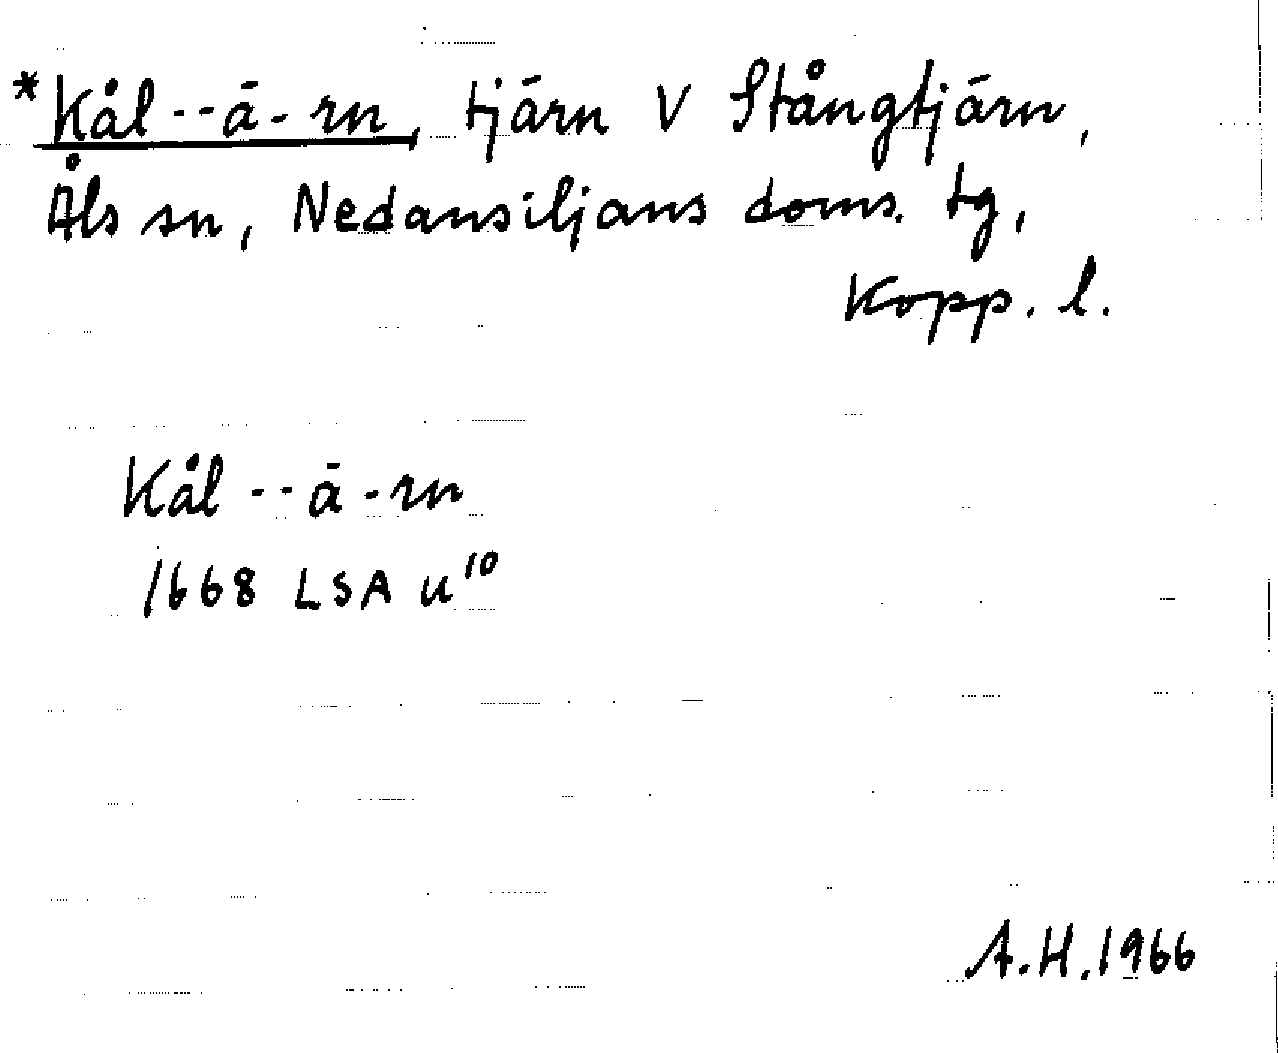 *Kål--ä-rn, tjärn V Stångtjärn,
Åls sn, Nedansiljans doms. tg,
Kopp. l.
Kål--ä-rn
1668 LSA u¹⁰
A.H.1966